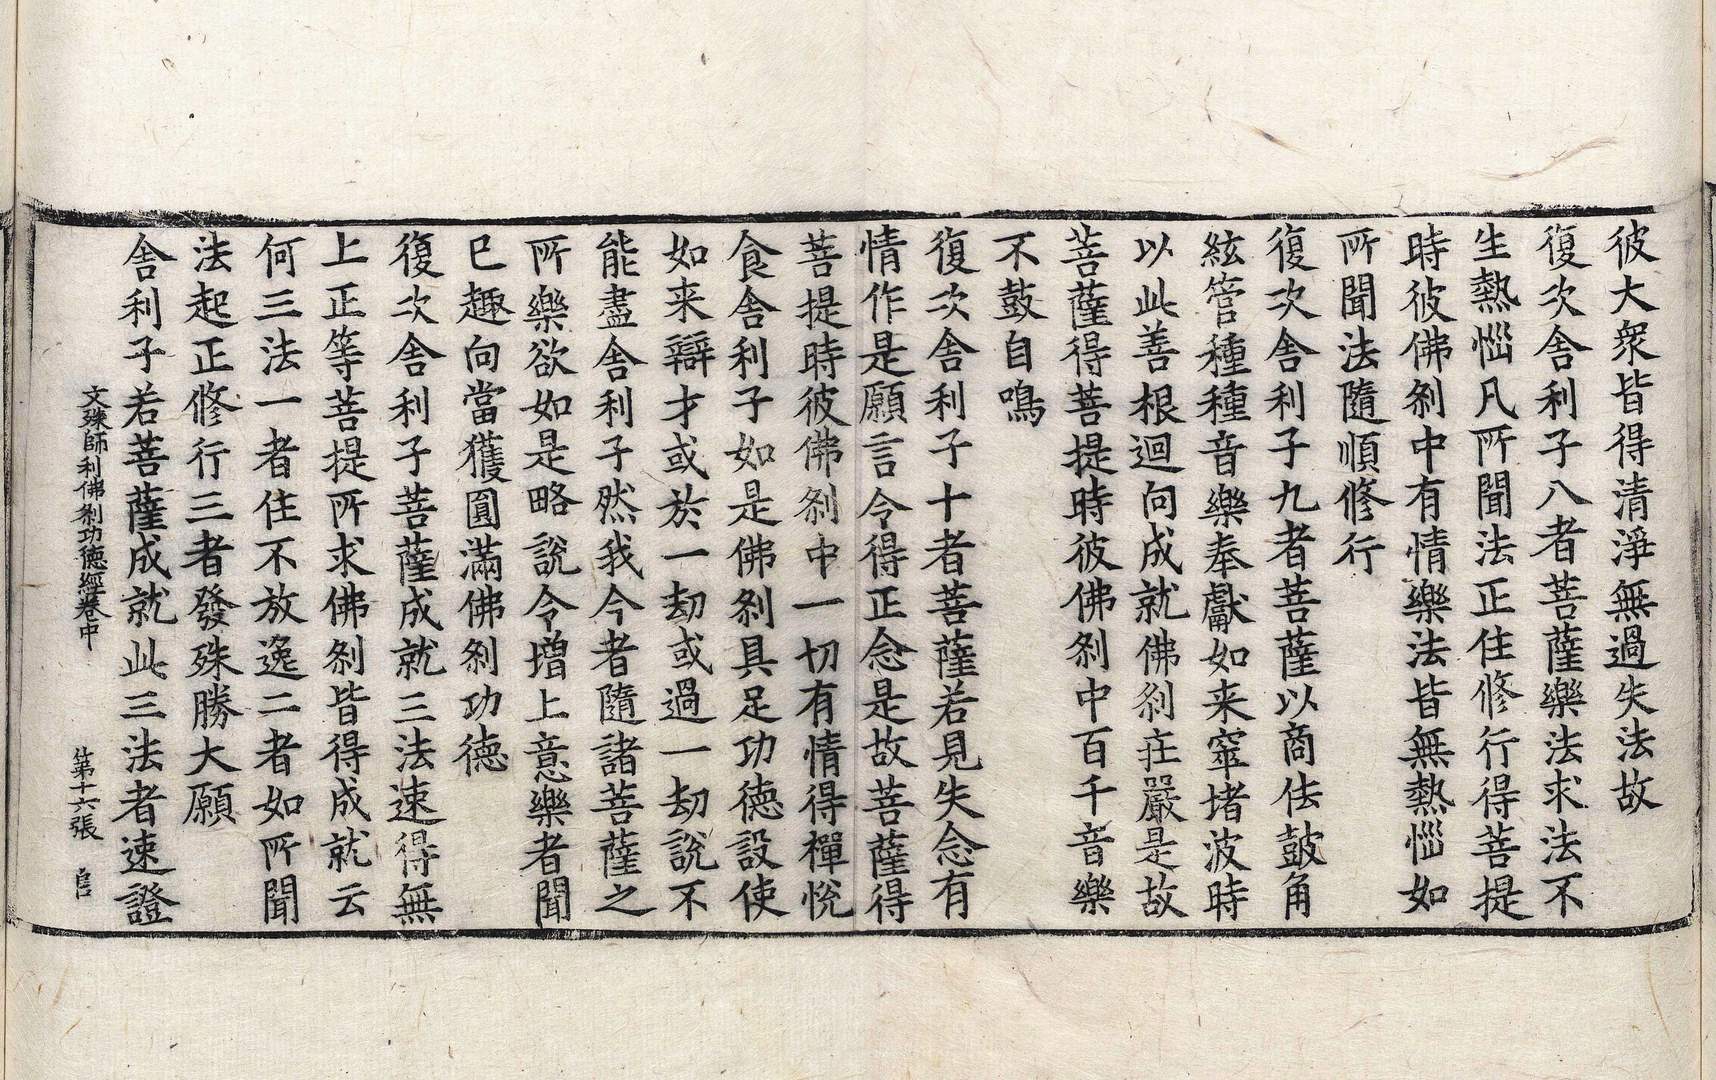 彼大衆皆得清淨無過失法故
復次舍利子八者菩薩樂法求法不
生熱惱凡所聞法正住修行得菩提
時彼佛刹中有情樂法皆無熱惱如
所聞法隨順修行
復次舍利子九者菩薩以商佉鼓角
絃管種種音樂奉獻如来窣堵波時
以此善根迴向成就佛刹庄嚴是故
菩薩得菩提時彼佛刹中百千音樂
不鼓自鳴
復次舍利子十者菩薩若見失念有
情作是願言令得正念是故菩薩得
菩提時彼佛刹中一切有情得禪悅
食舍利子如是佛刹具足功德設使
如来辯才或於一劫或過一劫說不
能盡舍利子然我今者隨諸菩薩之
所樂欲如是略說令增上意樂者聞
已趣向當獲圓滿佛刹功德
復次舍利子菩薩成就三法速得無
上正等菩提所求佛刹皆得成就云
何三法一者住不放逸二者如所聞
法起正修行三者發殊勝大願
舍利子若菩薩成就此三法者速證
文殊師利佛刹功德經卷中 第十六張